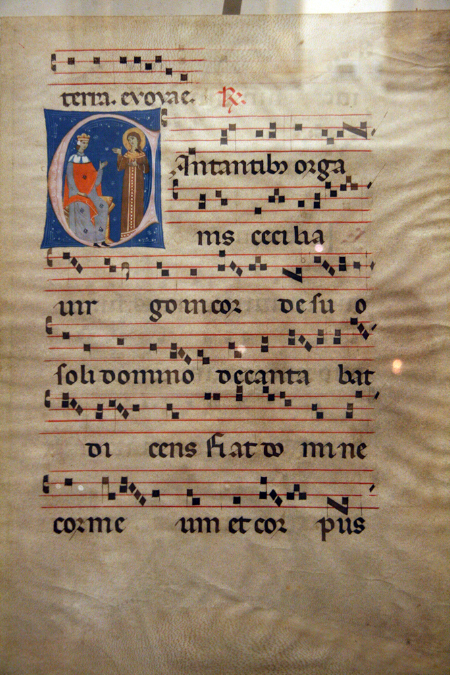 terra. evovae. R.
Cantantib; orga
nis cecilia
uir go in cor de su o
soli domino decanta bat
di cens Fi at do mi ne
cor me um et cor pus